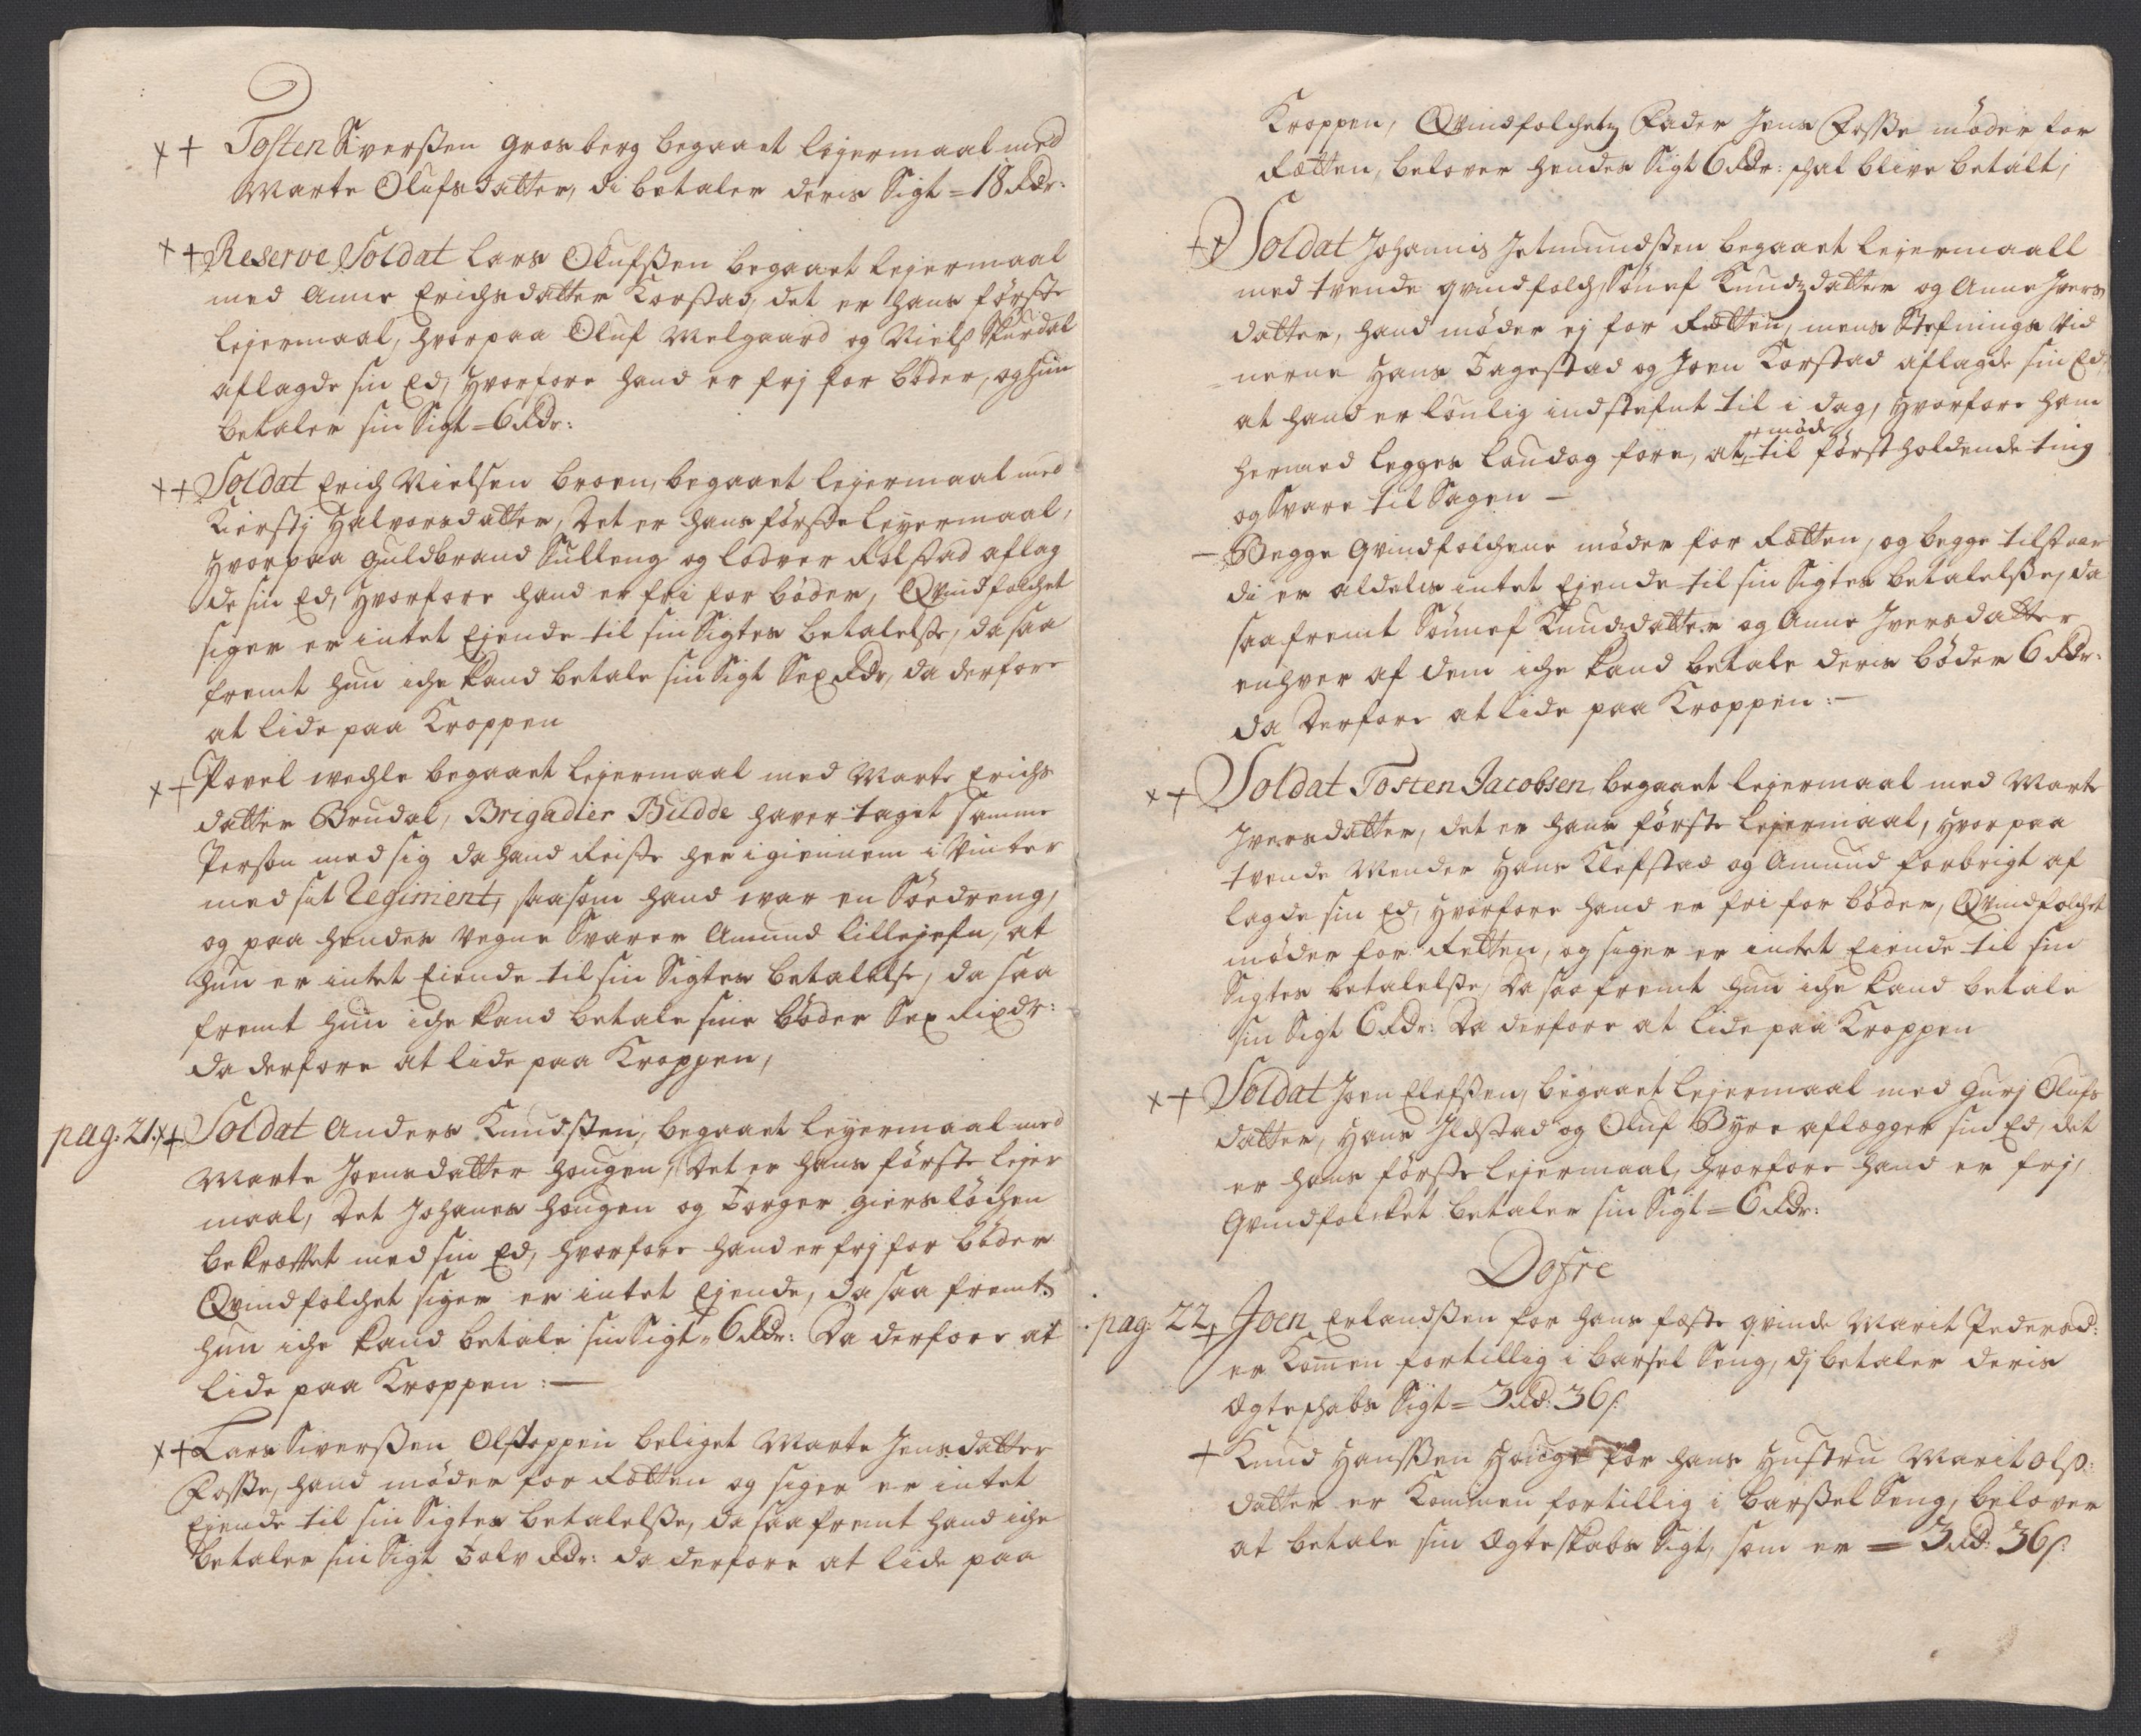 ×+ Tosten Siverßen Grosberg begaaet lejermaal med
Marte Olufsdatter, di betaler deris Sigt = 18 Rdr:
×+ Reserve Soldat Lars Olufßen begaaet lejermaal
med Anne Erichsdatter Korstad, det er hans første
lejermaal, hvorpaa Oluf Melgaard og Niels Skurdal
aflagde sin Ed, hvorfore hand er frj for bøder, og hun
betaler sin Sigt = 6 Rdr:
×+ Soldat Erich Nielsen broen, begaaet lejermaal med
Kierstj Halvorsdatter, Det er hans første lejermaal,
hvorpaa Guldbrand Sulleng og Lodver Rolstad aflag
de sin Ed, hvorfore hand er fri for bøder, Qvindfolchet
siger er intet Ejende til sin Sigtes betalelße, da saa
fremt hun iche kand betale sin Sigt Sex Rdr, da derfore
at lide paa Kroppen
×+ Povel Wechle begaaet lejermaal med Marte Erichs
datter Brudal, Brigadier Budde haver taget samme
Person med sig da hand Reiste her igiennem i Vinter
med sit Regiment, saasom hand war en Søedreng,
og paa hendes vegne Svarer Amund Lillejefn, at
hun er intet Eiende til sin Sigtes betalelse, da saa
fremt hun iche kand betale sine bøder Sex Rixdr:
da derfore at lide paa Kroppen,
pag: 21. ×+ Soldat Anders Knudßen, begaaet lejermaal med
Marte Joensdatter Hougen, Det er hans første lejer
maal, Det Johanes Hougen og Torger Giersløchen
bekræftet med sin Ed, hvorfore hand er frj for bøder
Qvindfolchet siger er intet Ejende, da saa fremt
hun iche kand betale sin Sigt = 6 Rdr: Da derfore at
lide paa Kroppen: —
×+ Lars Siverßen Olstoppen beliget Marte Jensdatter
Foße, hand møder for Rætten og siger er intet
Ejende til sin Sigtes betalelße, da saafremt hand iche
betaler sin Sigt Tolv Rdr: da derfore at lide paa
Kroppen, Qvindfolchetz Fader Jens Foße møder for
Rætten, belover hendes Sigt 6 Rdr: schal blive betalt,
+× Soldat Johannis Jetmundßen begaaet lejermaall
med tvende qvindfolch, Sønnef Knudzdatter og Anne Ivers
datter, hand møder ej for Rætten, mens Stefnings Vid
nerne Hans Tagestad og Joen Korstad aflagde sin Ed,
at hand er louulig indstefnt til i dag, hvorfore ham
hermed legges Laudag fore, at til først holdende ting
+ møde
og Svare til Sagen —
— Begge Qvindfolchene møder for Rætten, og begge tilstaar
di er aldelis intet Ejende til sin Sigtes betalelße, da
saafremt Sønnef Knudzdatter og Anne Iversdatter
enhver af dem iche kand betale deris bøder 6 Rdr:
da derfore at lide paa Kroppen: —
×+ Soldat Tosten Jacobsen, begaaet lejermaal med Marte
Iversdatter, det er hans første lejermaal, hvorpaa
tvende Mender Hans Klefstad og Amund Forbrigt af
lagde sin Ed, hvorfore hand er fri for bøder, Qvindfolchet
møder for Retten, og siger er intet Eiende til sin
Sigtes betalelße, Da saa fremt hun iche kand betale
sin Sigt 6 Rdr: Da derfore at lide paa Kroppen
×+ Soldat Joen Elefßen, begaaet lejermaal med Gurj Olufs
datter, Hans Ildstad og Oluf Byre aflægger sin Ed, det
er hans første lejermaal, hvorfore hand er frj,
Qvindfolcket betaler sin Sigt = 6 Rdr:
Dofre
pag: 22. + Joen Erlandßen for hans feste qvinde Marit Pedersd:
er Komen fortillig i barsel Seng, dj betaler deris
Ægteschabs Sigt = 3 Rd: 36 ß:
+ Knud Hanßen Houge for hans Hustru Marit Ols:
datter er Kommen fortillig i barßel Seng, belover
at betale sin Ægteskabs Sigt, som er = 3 Rd: 36 ß: